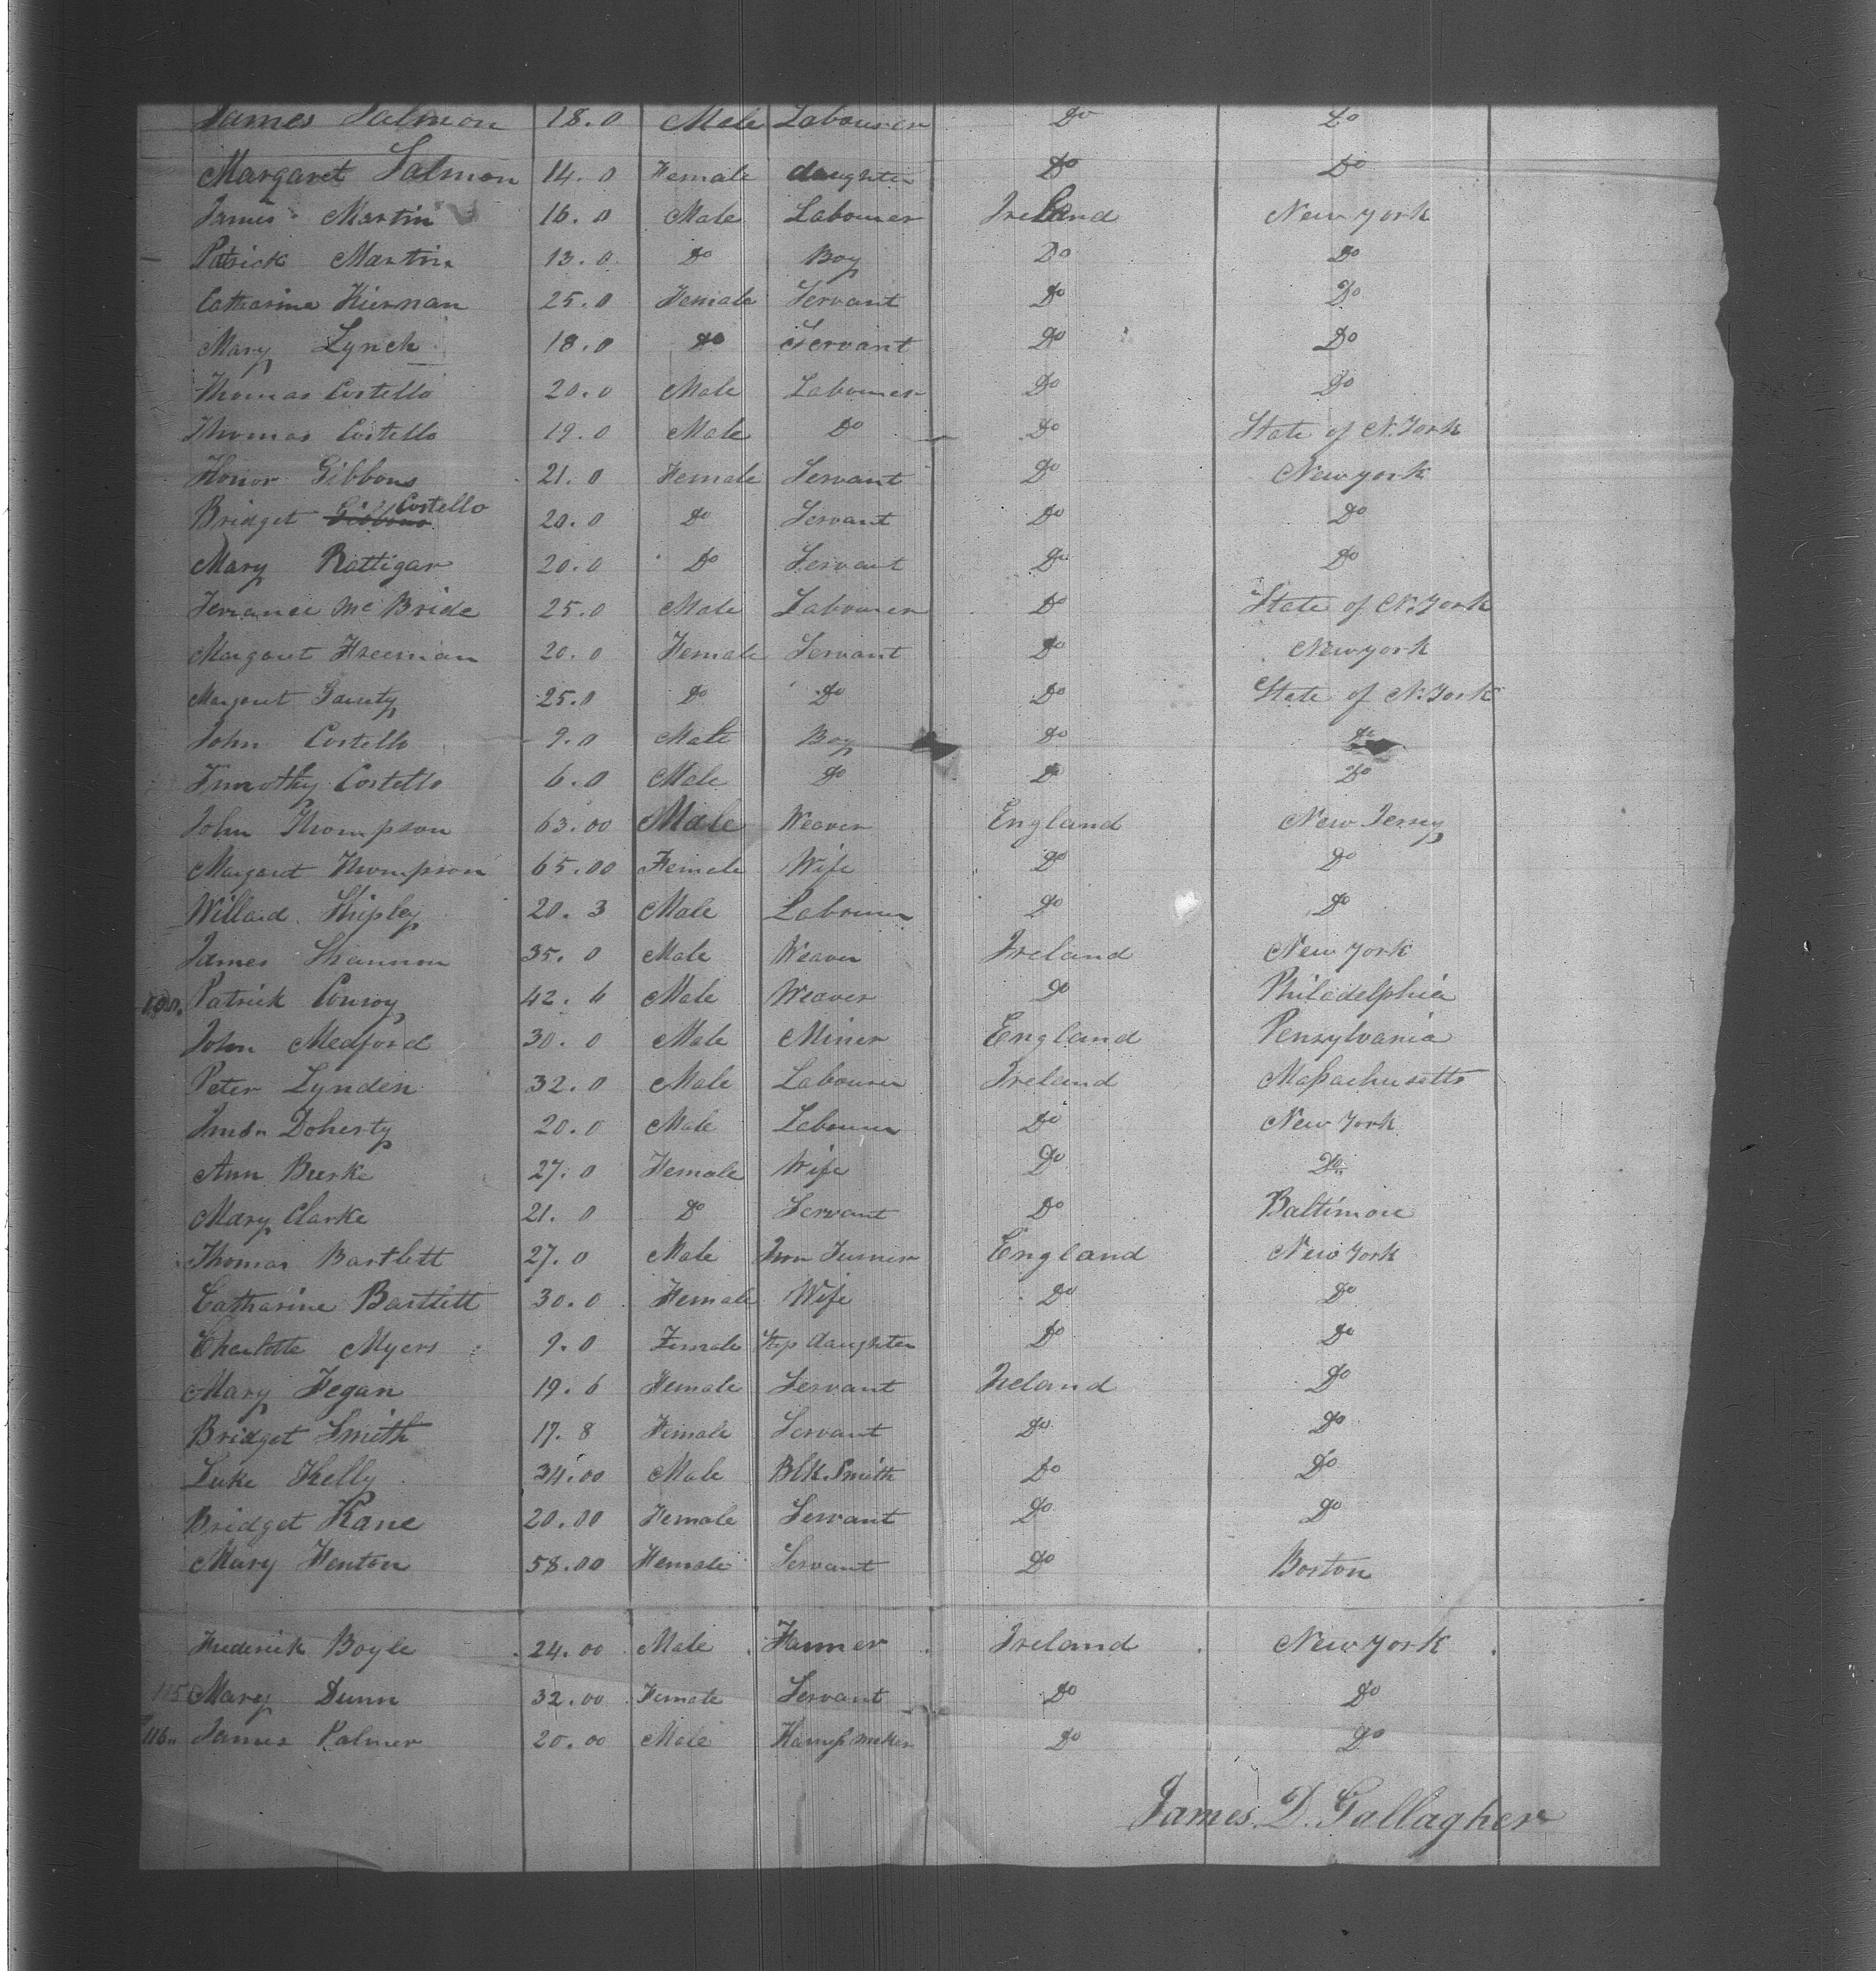 James Salmon 18.0 Male Labourer Do Do
Margaret Salmon 14.0 Female daughter Do Do
James Martin 16.0 Male Labourer Ireland New york
Patrick Martin 13.0 Do Boy Do Do
Catharine Kiernan 25.0 Female Servant Do Do
Mary Lynch 18.0 Do Servant Do Do
Thomas Costello 20.0 Male Labourer Do Do
Thomas Costello 19.0 Male Do Do State of N. York
Honor Gibbons 21.0 Female Servant Do New york
Bridget Gibbons Costello 20.0 Do Servant Do Do
Mary Rattigan 20.0 Do Servant Do Do
Terrance Mc Bride 25.0 Male Labourer Do State of N. York
Margaret Freeman 20.0 Female Servant Do New york
Margaret 25.0 Do Do Do State of N. York
John Costello 9.0 Male Boy Do Do
Timothy Costello 6.0 Male Do Do Do
John Thompson 63.00 Male Weaver England New Jersey
Margaret Thompson 65.00 Female Wife Do Do
Willard Shipley 20.3 Male Labourer Do Do
James Shannon 35.0 Male Weaver Ireland New York
Patrick Conroy 42.6 Male Weaver Do Philadelphia
John Medford 30.0 Male Miner England Pensylvania
Peter Lynden 32.0 Male Labourer Ireland Massachusetts
Doherty 20.0 Male Labourer Do New York
Ann Burke 27.0 Female Wife Do Do
Mary Clarke 21.0 Do Servant Do Baltimore
Thomas Bartlett 27.0 Male Iron Turner England New York
Catharine Bartlett 30.0 Female Wife Do Do
Charlotte Myers 9.0 Female Step daughter Do Do
Mary Fegan 19.6 Female Servant Ireland Do
Bridget Smith 17.8 Female Servant Do Do
Luke Kelly 34.00 Male Blk Smith Do Do
Bridget Kane 20.00 Female Servant Do Do
Mary Fenton 58.00 Female Servant Do Boston
Frederick Boyle 24.00 Male Farmer Ireland New York
115 Mary Dunn 32.00 Female Servant Do Do
116 James Palmer 20.00 Male Harness maker Do Do
James D. Gallagher